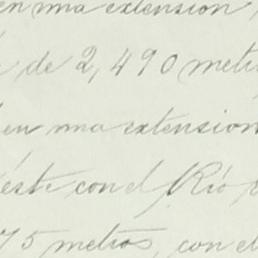 en una extension
de 2,490 metr
en una extension
éste con el Rio
75 metros, con el